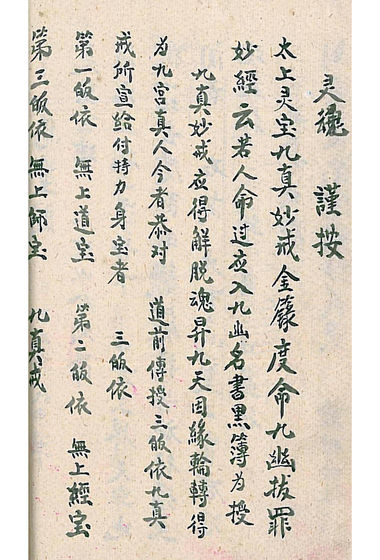 灵龝 謹按
太上灵宝九真妙戒金籙度命九幽拔罪
妙經云若人命过应入九幽名書黑簿为授
九真妙戒应得解脱魂昇九天因緣輪轉得
为九宫真人今者恭对 道前傳授三皈依九真
戒所宣給付持力身宝者 三皈依
第一皈依 無上道宝 第二皈依 無上經宝
第三皈依 無上師宝 九真戒